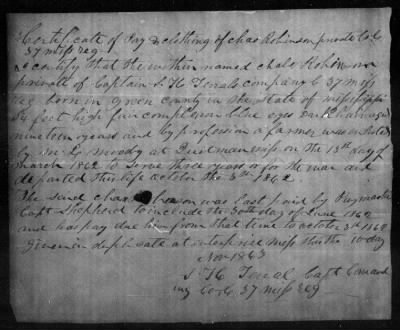 Certificate of Pay & clothing of Chas Robinson private Co C
37 Miss Reg
I certify that the within named Chals Robinson
private of Captain S H Terrals company C 37 Miss
Reg born in green county in the State of mississippi
feet high fair complexion blue eyes Dark hair aged
nineteen years and by profession a farmer was enlisted
by Moody at Quitman miss on the 13th day of
march 1862 to serve three years or for the war and
departed this life october the 3rd 1862
The said Chas Robinson was last paid by Paymaster
Capt Shepherd to include the 30th day of June 1862
and has pay due him from that time to october 3rd 1862
given in duplicate at enterprise miss this the 10 day
Nov 1863
S H Terral Capt Comand
ing Co C 37 Miss Reg